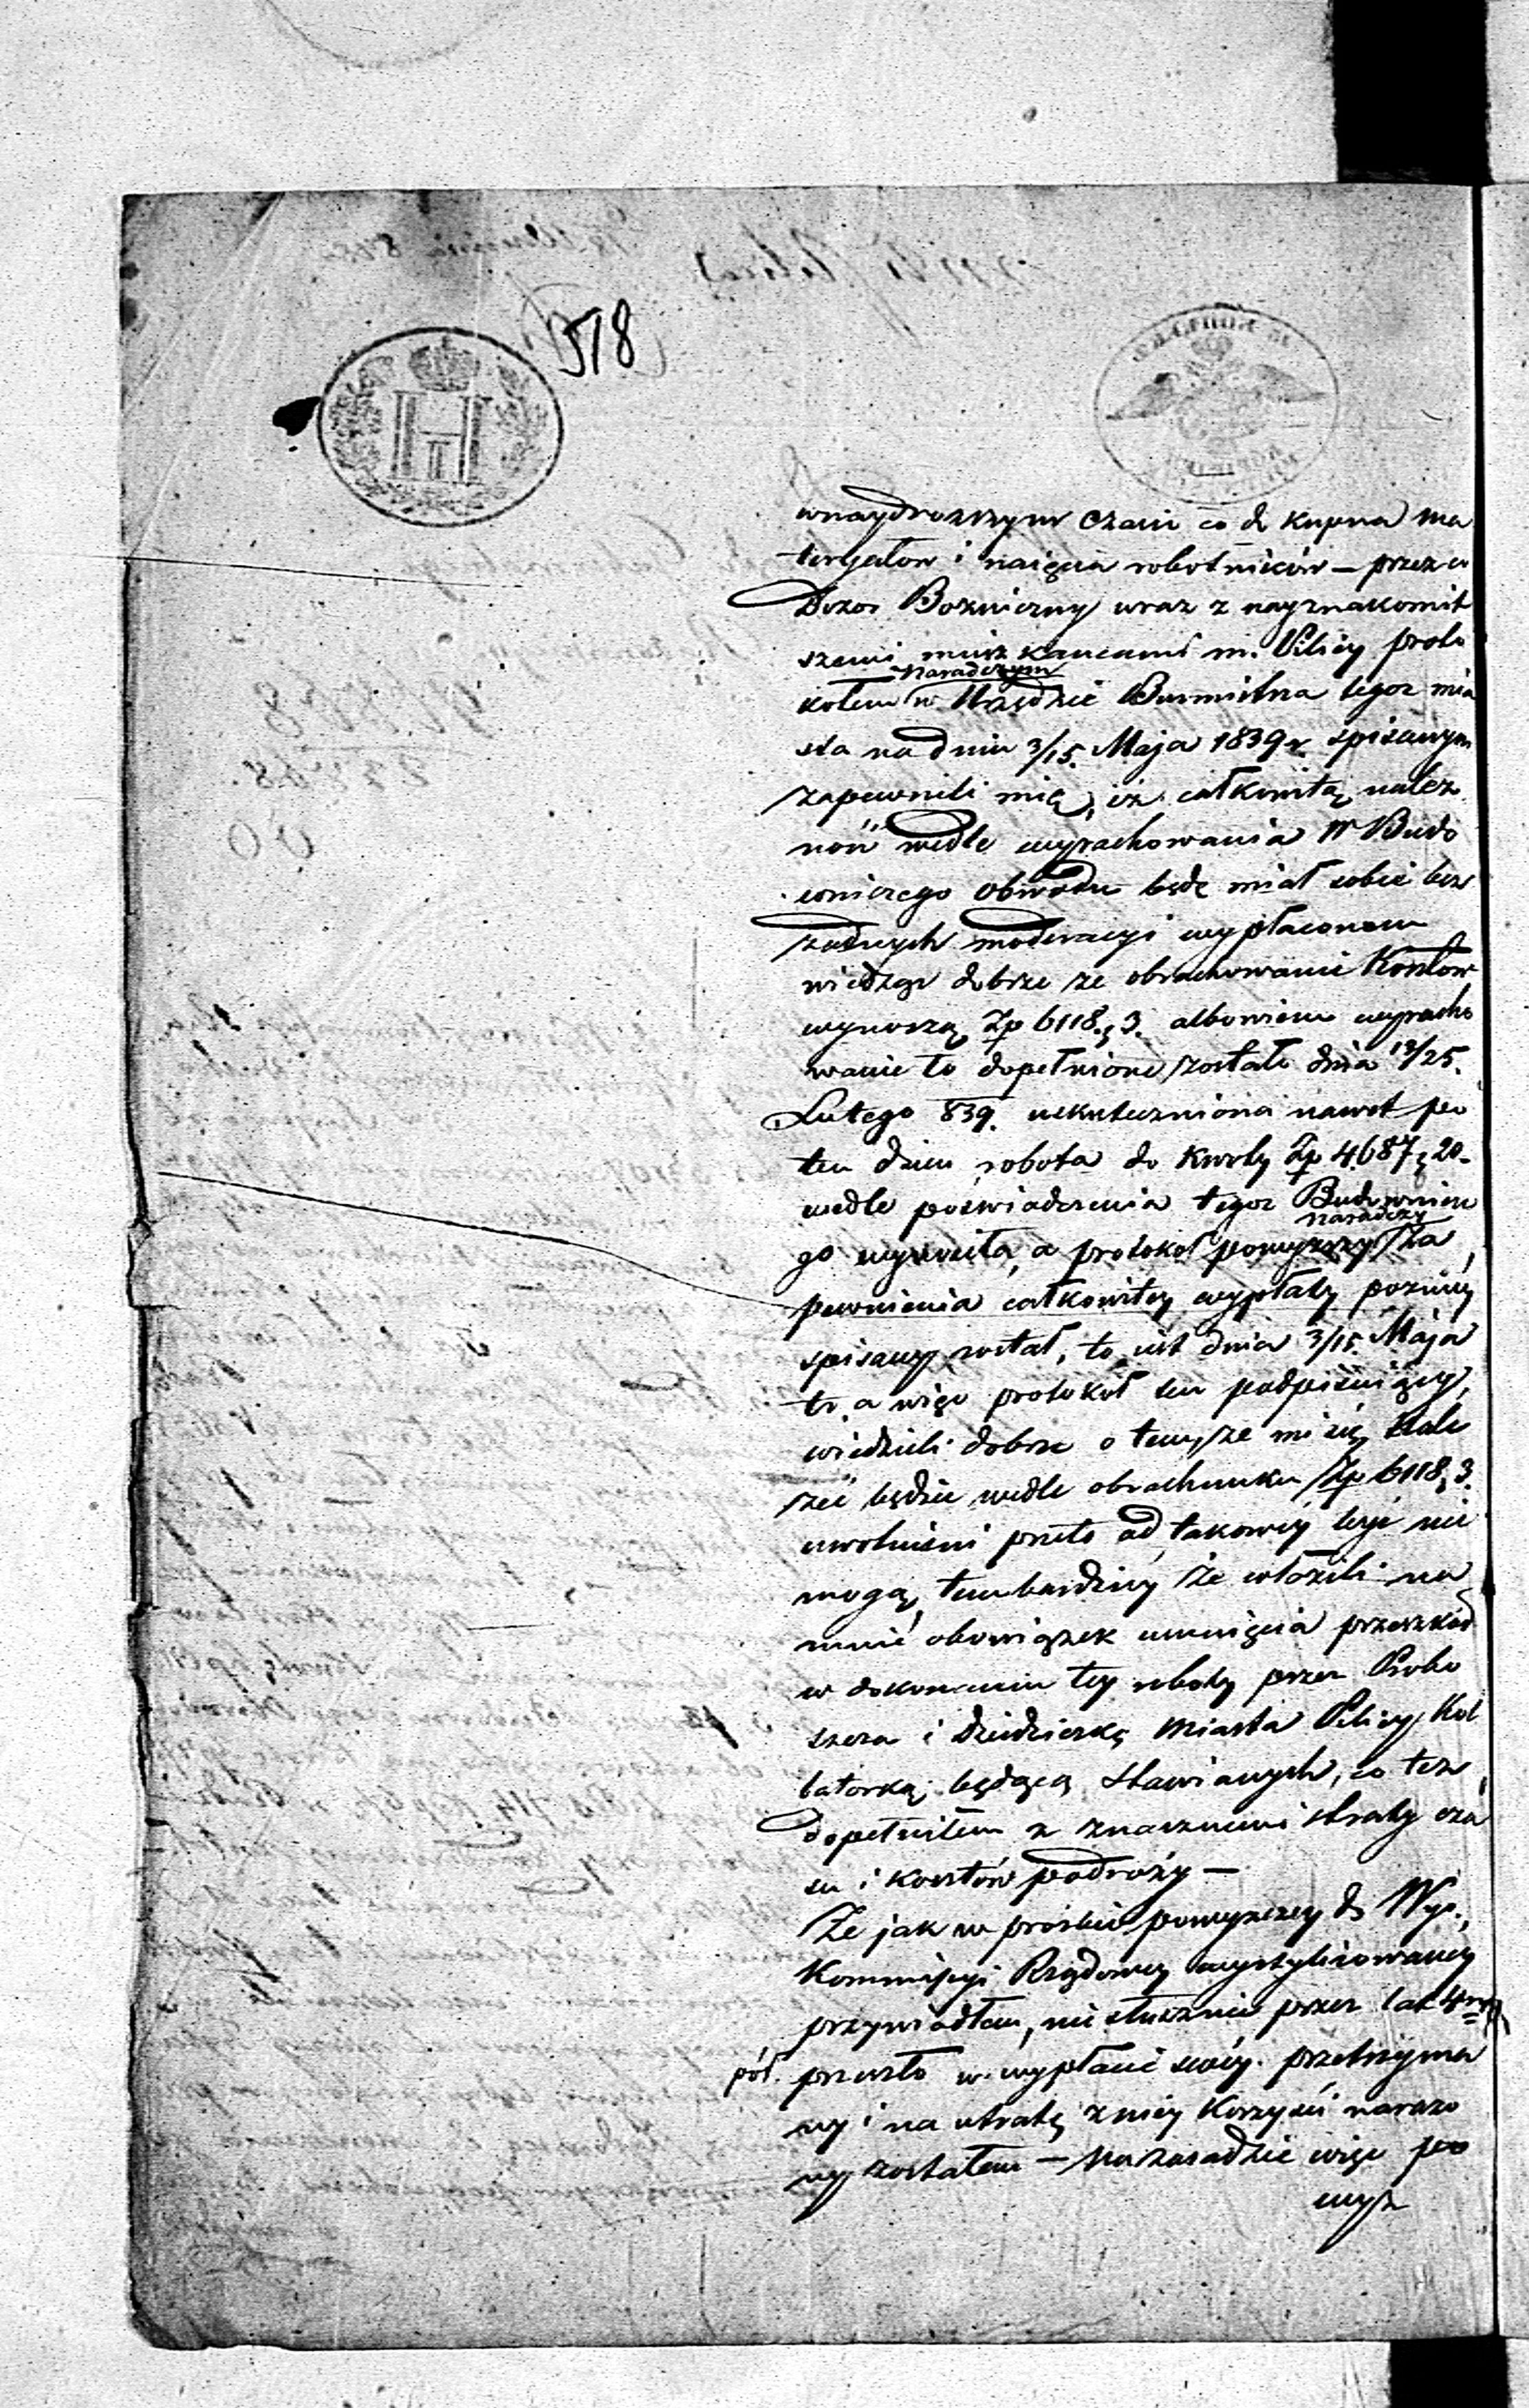 578
wnaydroższym czasie co do kupna ma
teryałow i naięcia robotników — przez co
Dozor Bożniczny wraz z nayznakomit
szemi mieszkancami m. Pilicy proto
kołem naradczym w Urzędzie Burmistrza tegoz mia
sta na dniu 3/15. Maja 1839 r. spisanym
zapewnili mię, iz całkowitą nalez
ność wedle wyrachowania W Budo
wniczego Obwodu będę miał sobie bez
zadnych moderacyi wypłaconem
wiedząc dobrze ze obrachowanie Kosztow
wynoszą Zp 6118. g 3. albowiem wyracho
wanie to dopełnione zostało dnia 13/25.
Lutego 839. uskuteczniona nawet po
ten dzien robota do kwoty Zp 4687 g 20.
wedle poświadczenia tegoz Budownicze
go wynosiła, a protokoł powyzszy naradczy za
pewnienia całkowitey wypłaty pozniey
spisany został, to iest dnia 3/15. Maja
tr. a więc protokół ten podpisuiący,
wiedzieli dobrze o tem, ze mi się nale
żeć będzie wedle obrachunku Zp 6118 g 3.
uwolnieni przeto od takowey bydź nie
mogą, tembardziey że włożili na
mnie obowiązek usunięcia przeszkod
w dokonaniu tey roboty przez Probo
szcza i Dziedziczkę Miasta Pilicy Kol
latorką będącą stawianych, co tez
dopełniłem z znacznemi straty cza
su i kosztów podroży —
Że jak w prośbie powyzszey do Wys.
Kommissyi Rządowey wystylizowaney
przywiodłem, nie słusznie przez lat 4ry
pół. przeszło w wypłacie swey przetrzyma
ny i na utratę z niey korzyści narażo
ny zostałem — Na zasadzie więc po
wyż